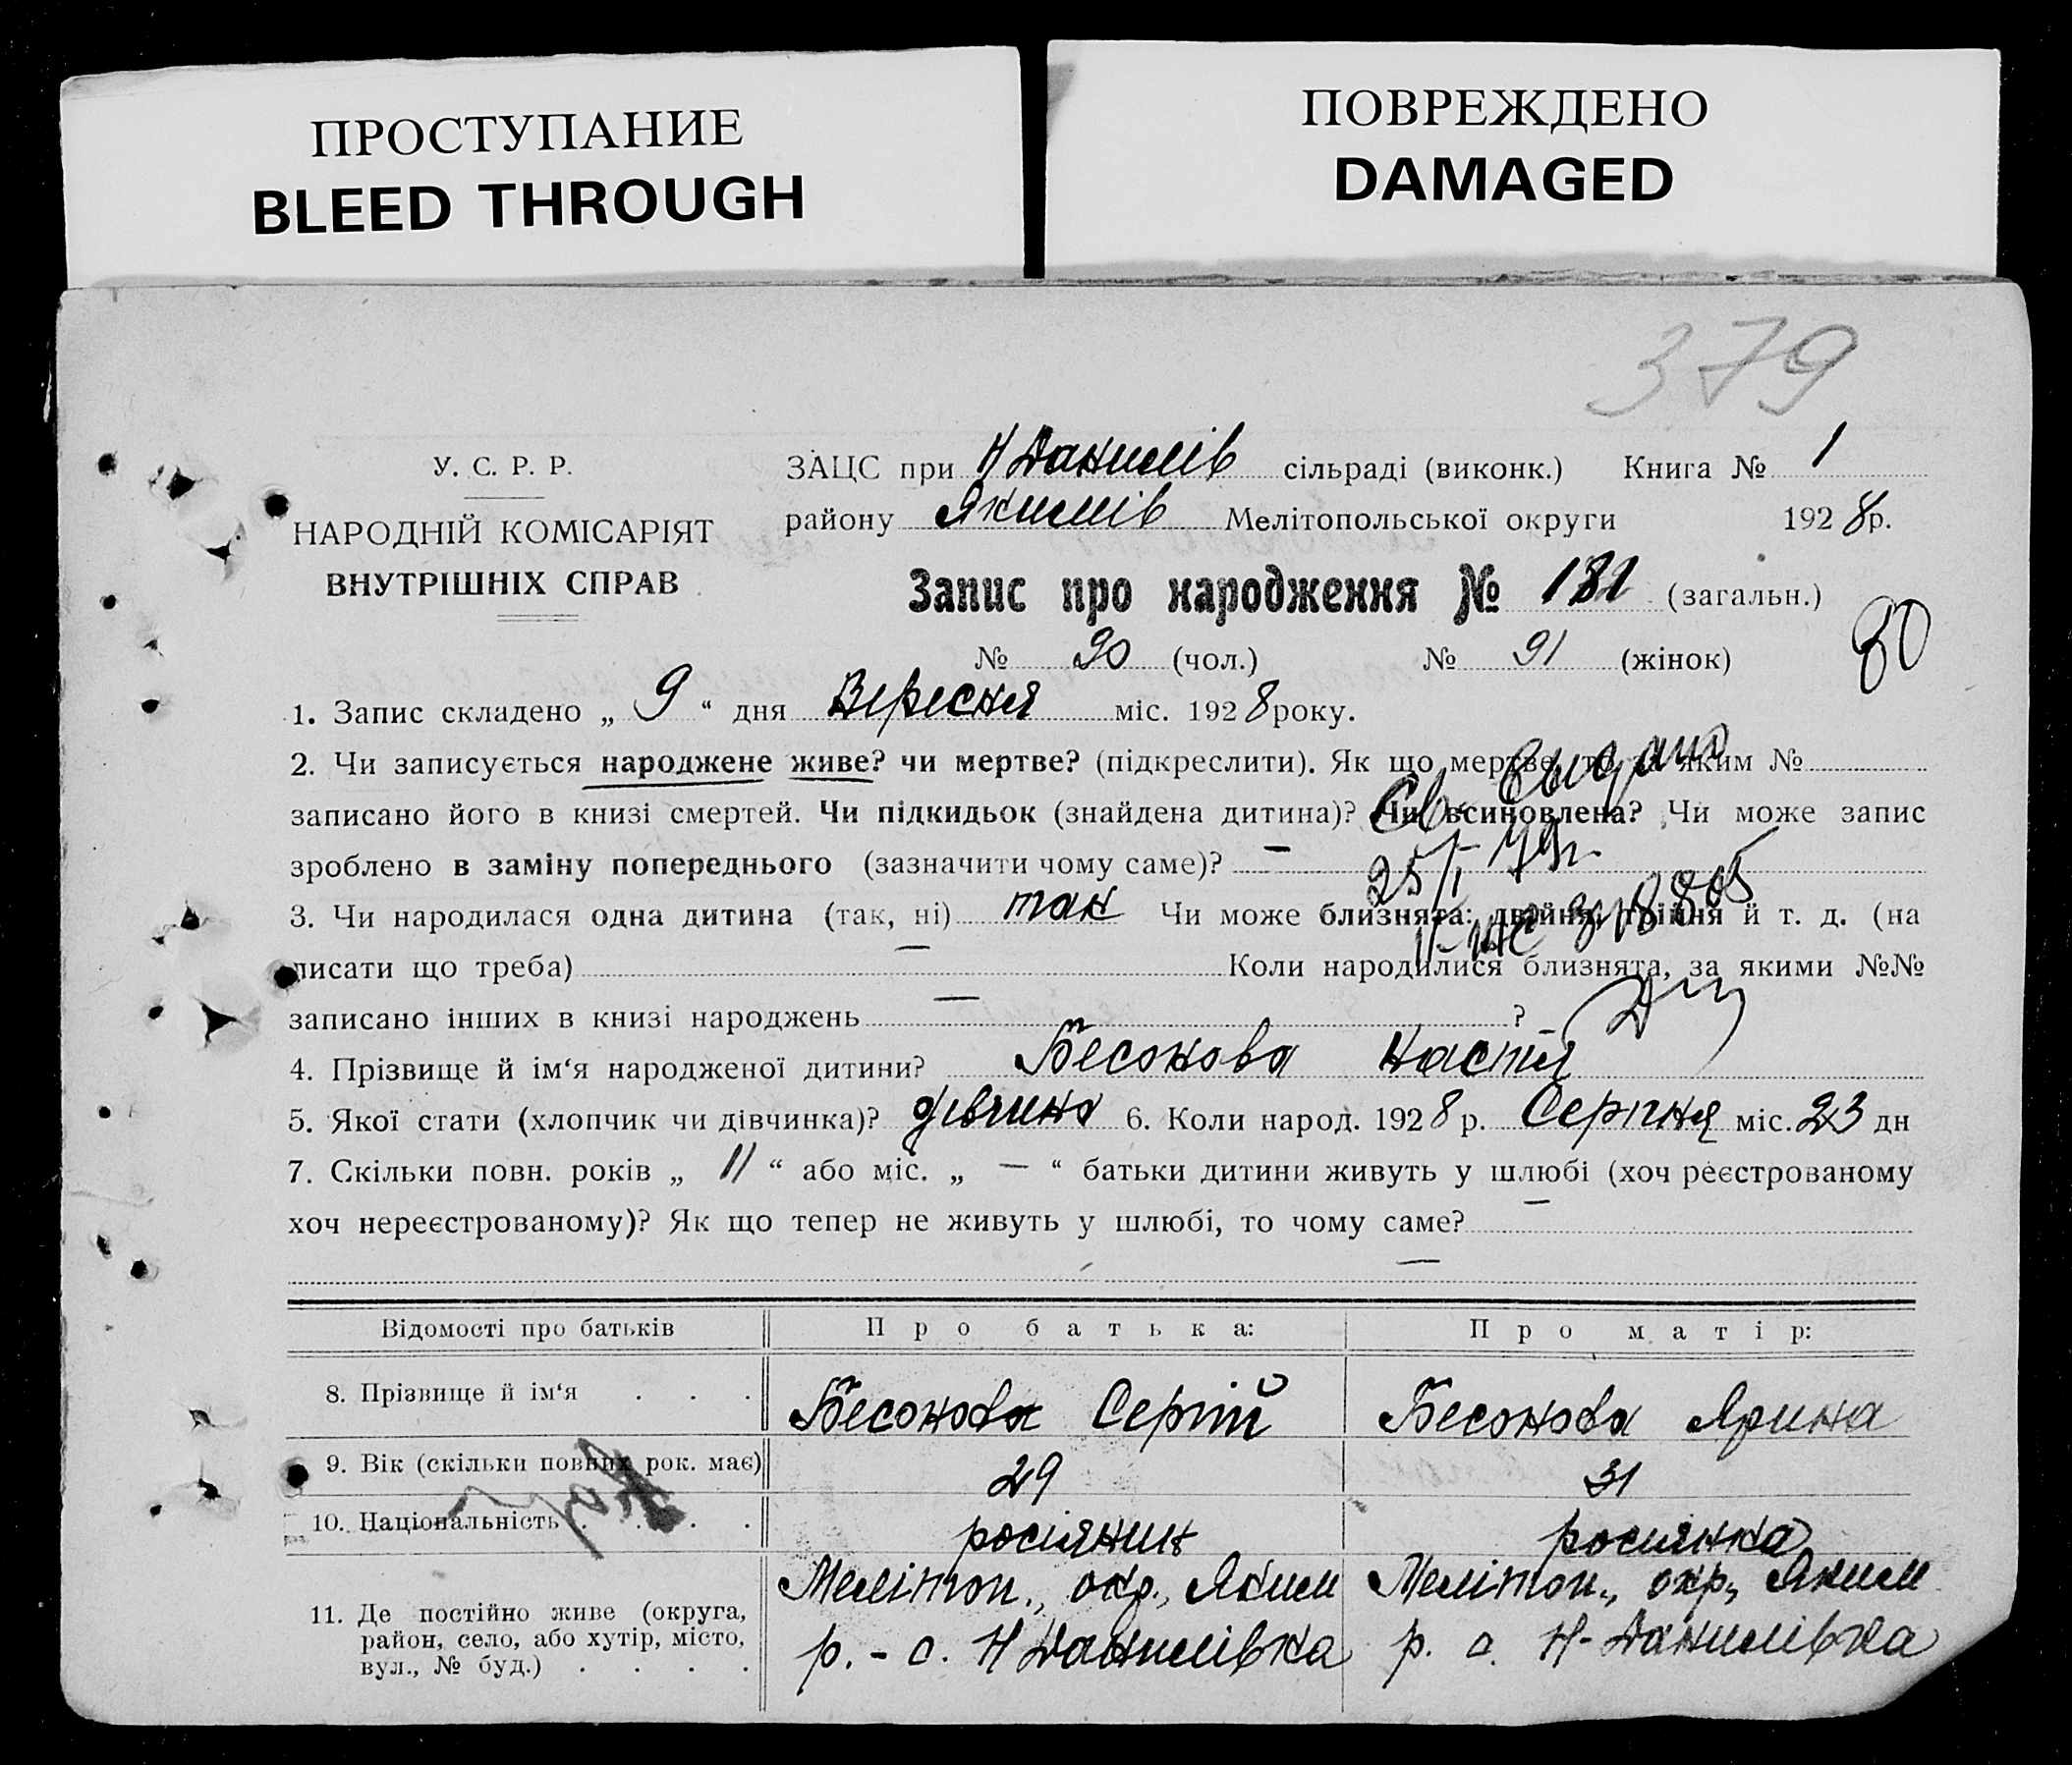 ПРОСТУПАНИЕ
BLEED THROUGH
ПОВРЕЖДЕНО
DAMAGED
379
У. С. Р. Р.
НАРОДНІЙ КОМІСАРІЯТ
ВНУТРІШНІХ СПРАВ
ЗАЦС при Н Данилів сільраді (виконк.) Книга № 1
району Якимів Мелітопольської округи 1928р.
Запис про народження № 181 (загальн.)
№ 90 (чол.) № 91 (жінок)
1. Запис складено „ 9 “ дня Вересня міс. 1928 року.
2. Чи записується народжене живе? чи мертве? (підкреслити). Як що мертве, то за яким №
записано його в книзі смертей. Чи підкидьок (знайдена дитина)? Чи всиновлена? Чи може запис
зроблено в заміну попереднього (зазначити чому саме)? —
Св. выдано
25/I 79г.
3. Чи народилася одна дитина (так, ні) так Чи може близнята: двійня, трійня й т. д. (на
писати що треба) — Коли народилися близнята, за якими №№
записано інших в книзі народжень — ?
4. Прізвище й ім‘я народженої дитини? Бесонова Настя
5. Якої стати (хлопчик чи дівчинка)? дівчина 6. Коли народ. 1928 р. Серпня міс. 23 дн
7. Скільки повн. років „ 11 “ або міс. „ — “ батьки дитини живуть у шлюбі (хоч реєстрованому
хоч нереєстрованому)? Як що тепер не живуть у шлюбі, то чому саме? —
—
Відомості про батьків Про батька: Про матір:
8. Прізвище й ім‘я . . . Бесонова Сергій Бесонова Ярина
9. Вік (скільки повних рок. має) 29 31
10. Національність . . . . росіянин росіянка
11. Де постійно живе (округа,
район, село, або хутір, місто,
вул., № буд.) . . . .
Мелітоп., окр., Яким
р. - с. Н Данилівка
Мелітоп., окр., Яким
р. с. Н-Данилівка